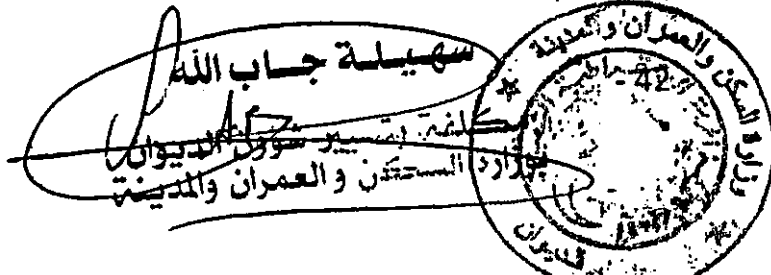 سهيلة جاب الله
مكلفة بتسيير شؤون الديوان
بوزارة السكن و العمران والمدينة
وزارة السكن والعمران والمدينة
42